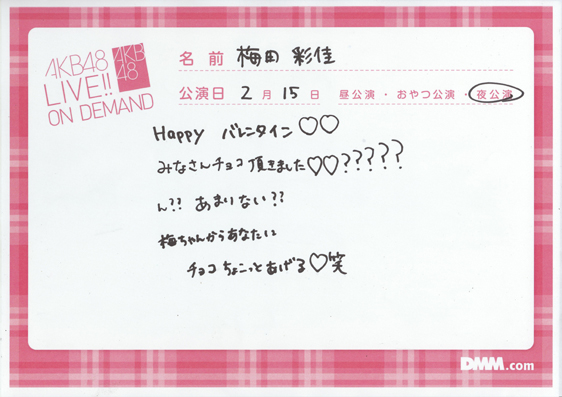 AKB48
LIVE!!
ON DEMAND
AKB
48
名前 梅田 彩佳
公演日 2月 15日 昼公演・おやつ公演・夜公演
Happy バレンタイン♡♡
みなさんチョコ頂きました♡♡?????
ん?? あまりない??
梅ちゃんからあなたに
チョコちょこっとあげる♡笑
DMM.com